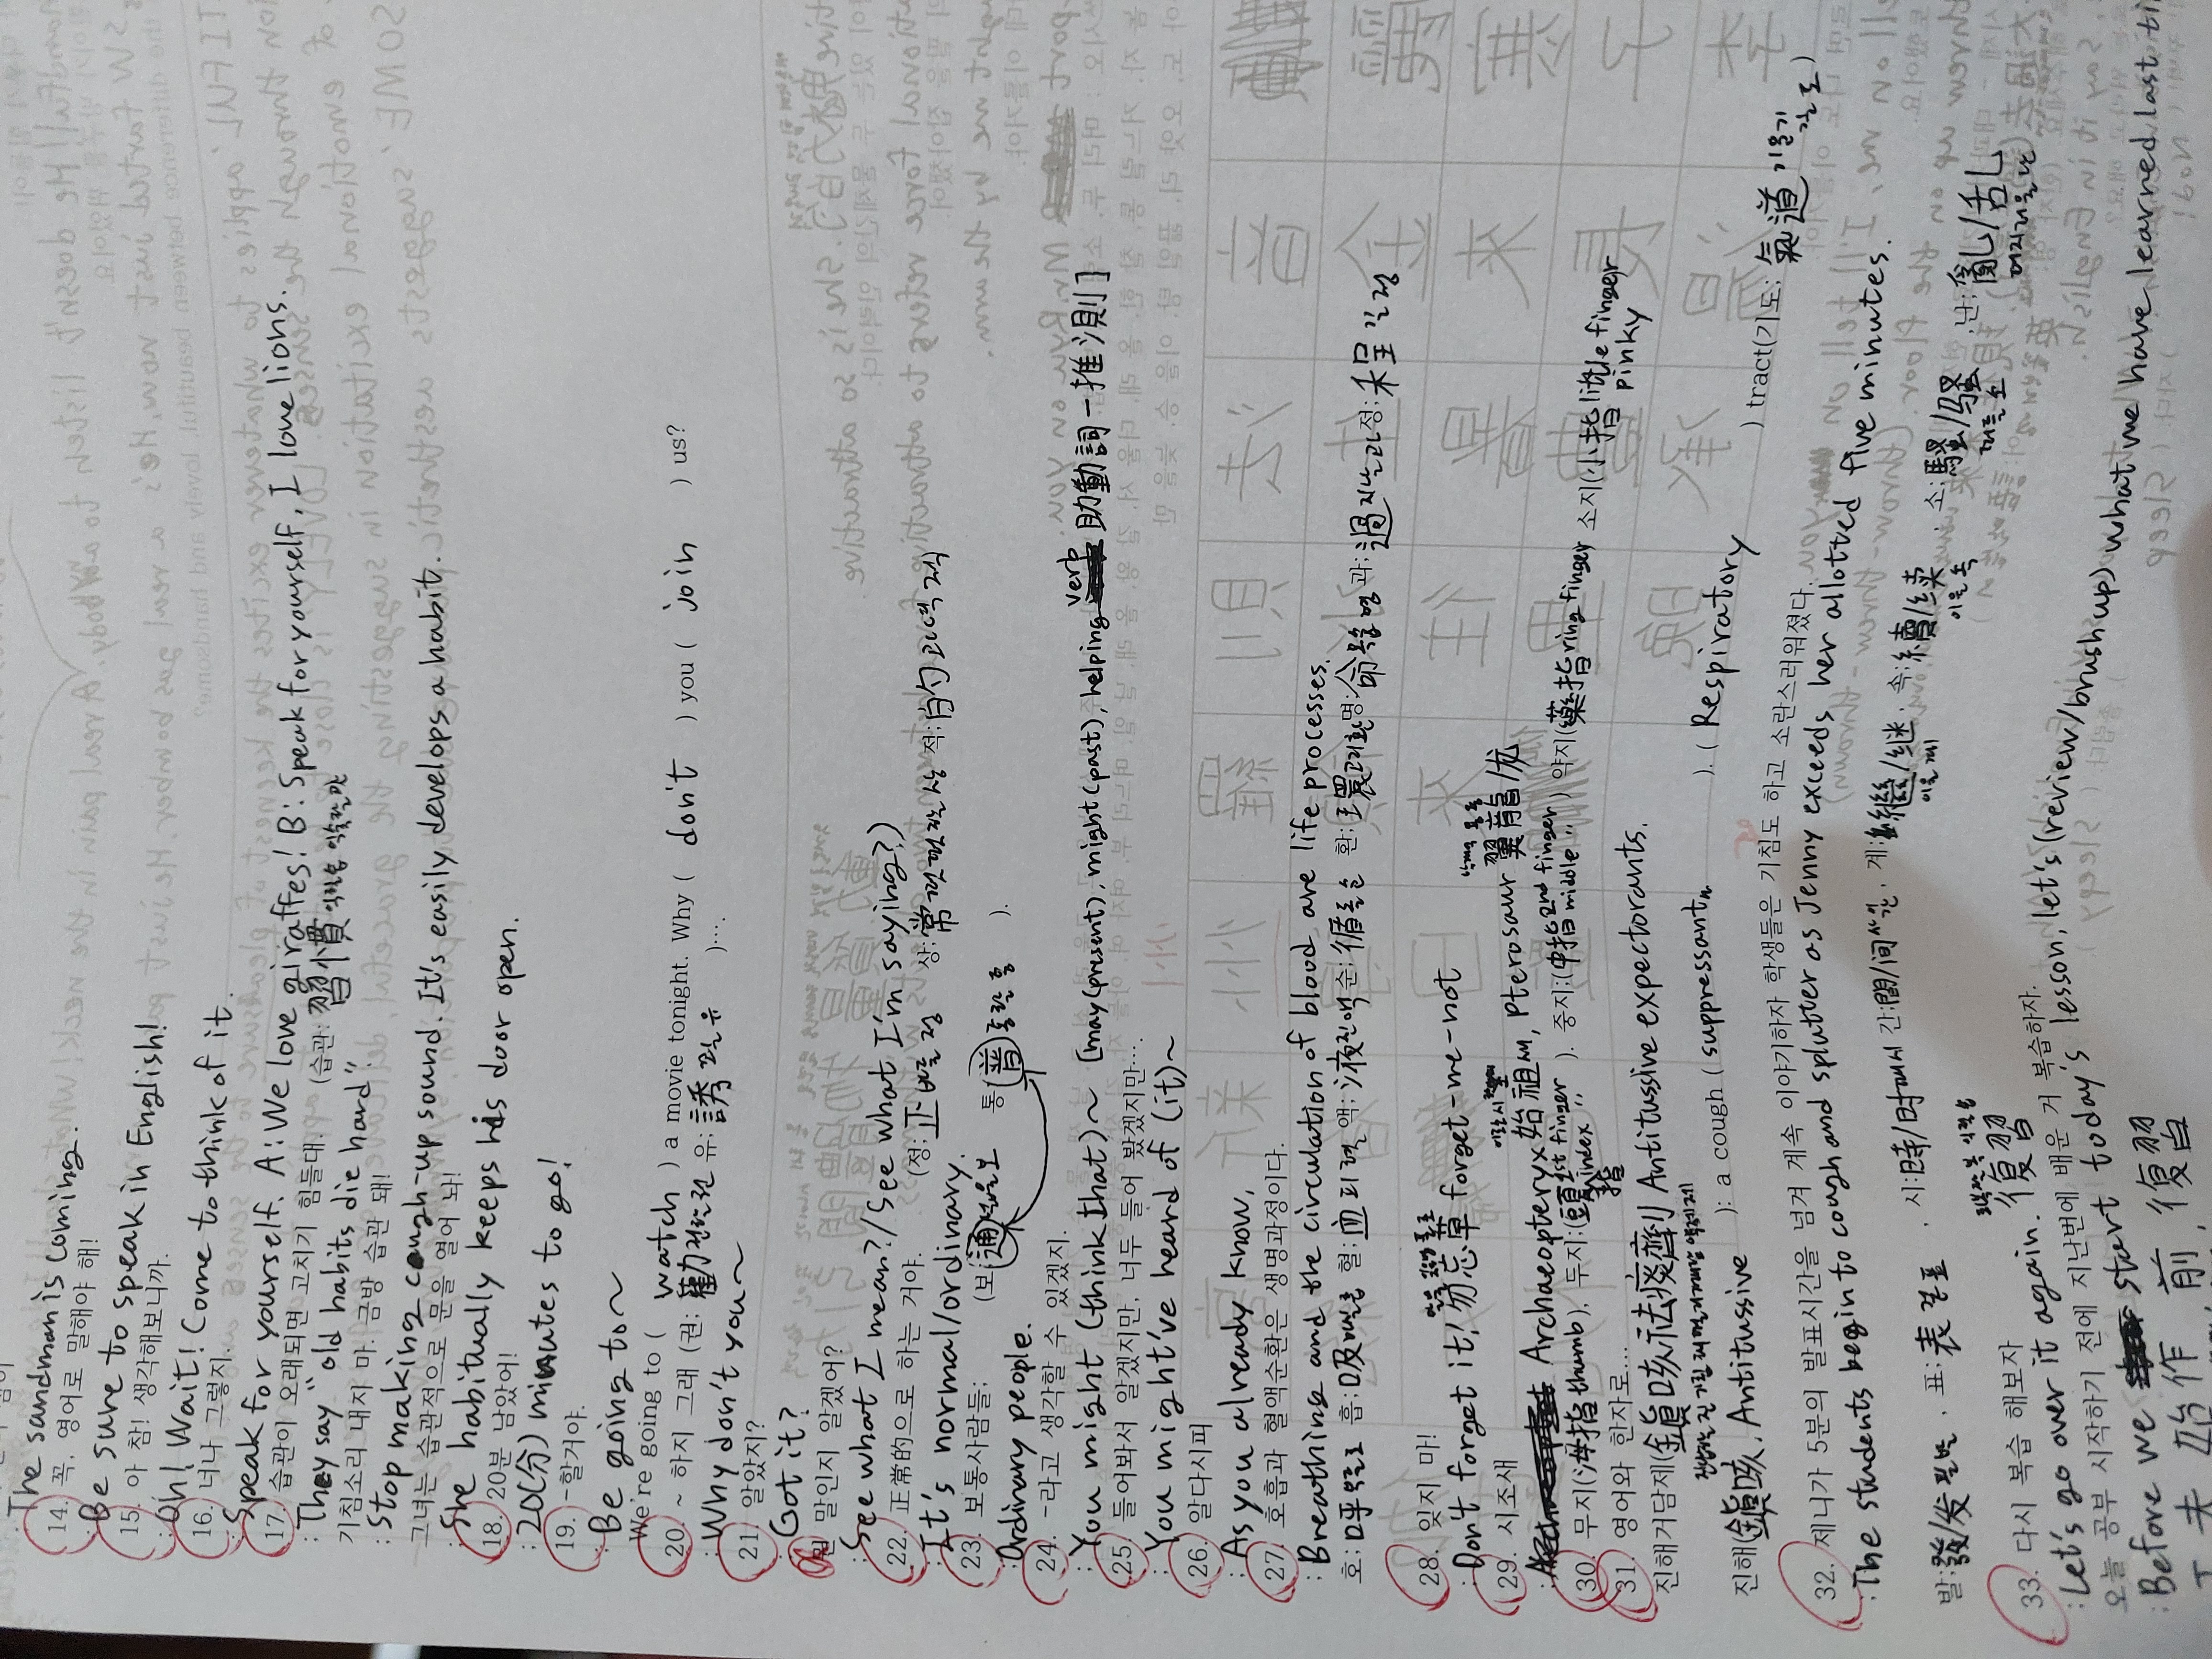 : The sandman is coming.
14. 꼭, 영어로 말해야 해!
: Be sure to speak in English!
15. 아 참! 생각해보니까.
: Oh! Wait! Come to think of it.
16. 너나 그렇지.
: Speak for yourself. A: We love giraffes! B: Speak for yourself, I love lions.
17. 습관이 오래되면 고치기 힘들대. (습관: 習慣 익힐습 익숙할관
: They say "old habits die hard"
기침소리 내지 마. 금방 습관 돼!
: Stop making cough-up sound. It's easily develops a habit.
그녀는 습관적으로 문을 열어 놔!
: She habitually keeps his door open.
18. 20분 남았어!
: 20(分) minutes to go!
19. -할거야.
: Be going to ~
We're going to ( watch ) a movie tonight. Why ( don't ) you ( join ) us?
20. ~ 하지 그래 (권: 勸 권할권 유: 誘 꾈유 )....
: Why don't you ~
21. 알았지?
: Got it?
뭔 말인지 알겠어?
: See what I mean? / See what I'm saying?)
22. 正常的으로 하는 거야. (정: 正 바를정 상: 常 떳떳할상 적: 的 과녁적
: It's normal/ordinary.
23. 보통사람들: (보 普 넓을보 통 通 통할통 ).
: Ordinary people.
24. -라고 생각할 수 있겠지.
: You might (think that) ~ [may(present), might(past), helping verb 助動詞 - 推測]
25. 들어봐서 알겠지만, 너두 들어 봤겠지만....
: You might've heard of (it) ~
26. 알다시피
: As you already know,
27. 호흡과 혈액순환은 생명과정이다.
: Breathing and the circulation of blood are life processes.
호: 呼 부를호 흡: 吸 마실흡 혈: 血 피혈 액: 液 진액액 순: 循 돌순 환: 環 고리환 명: 命 목숨명 과: 過 지날과 정: 程 길정
28. 잊지 마!
: Don't forget it! 勿忘草 forget-me-not
29. 시조새
: Archaeopteryx 始祖새, pterosaur 翼龍/龙
30. 무지(拇指 thumb). 두지:(頭指 1st finger index ). 중지:(中指 2nd finger middle ) 약지(藥指 ring finger 소지(小指 little finger pinky
31. 영어와 한자로....
진해거담제(鎭咳祛痰劑 Antitussive expectorants.
진해(鎭咳, Antitussive ): a cough ( suppressant ). ( Respiratory ) tract(기도: 氣道 기운기 길도)
32. 제니가 5분의 발표시간을 넘겨 계속 이야기하자 학생들은 기침도 하고 소란스러워졌다.
: The students begin to cough and splutter as Jenny exceeds her allotted five minutes.
발: 發/发 필발, 표: 表 겉표, 시: 時/时 때시 간: 間/间 사이간, 계: 繼/继 이을계, 속: 續/续 이을속, 소: 騷/骚 떠들소, 난: 亂/乱 어지러울난
33. 다시 복습 해보자
: Let's go over it again. 復習
오늘 공부 시작하기 전에 지난번에 배운 거 복습하자.
: Before we start today's lesson, let's (review/brush up) what we have learned last ti